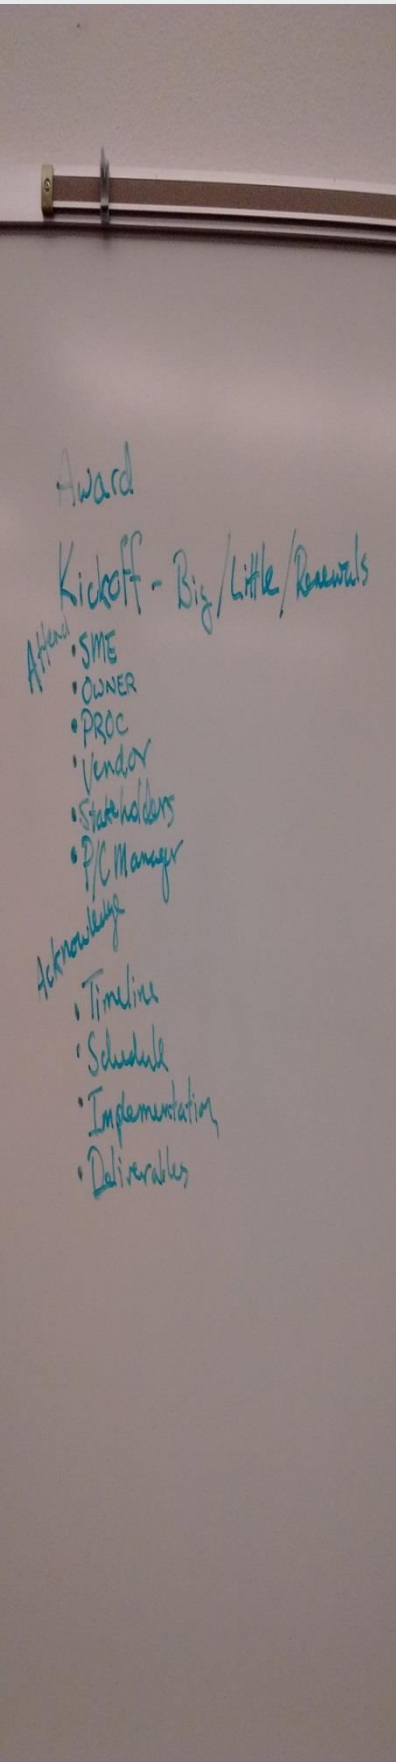 Award
Kickoff - Big/Little/Renewals
Attend
• SME
• OWNER
• PROC
• Vendor
• Stakeholders
• P/C Manager
Acknowledge
• Timeline
• Schedule
• Implementation
• Deliverables